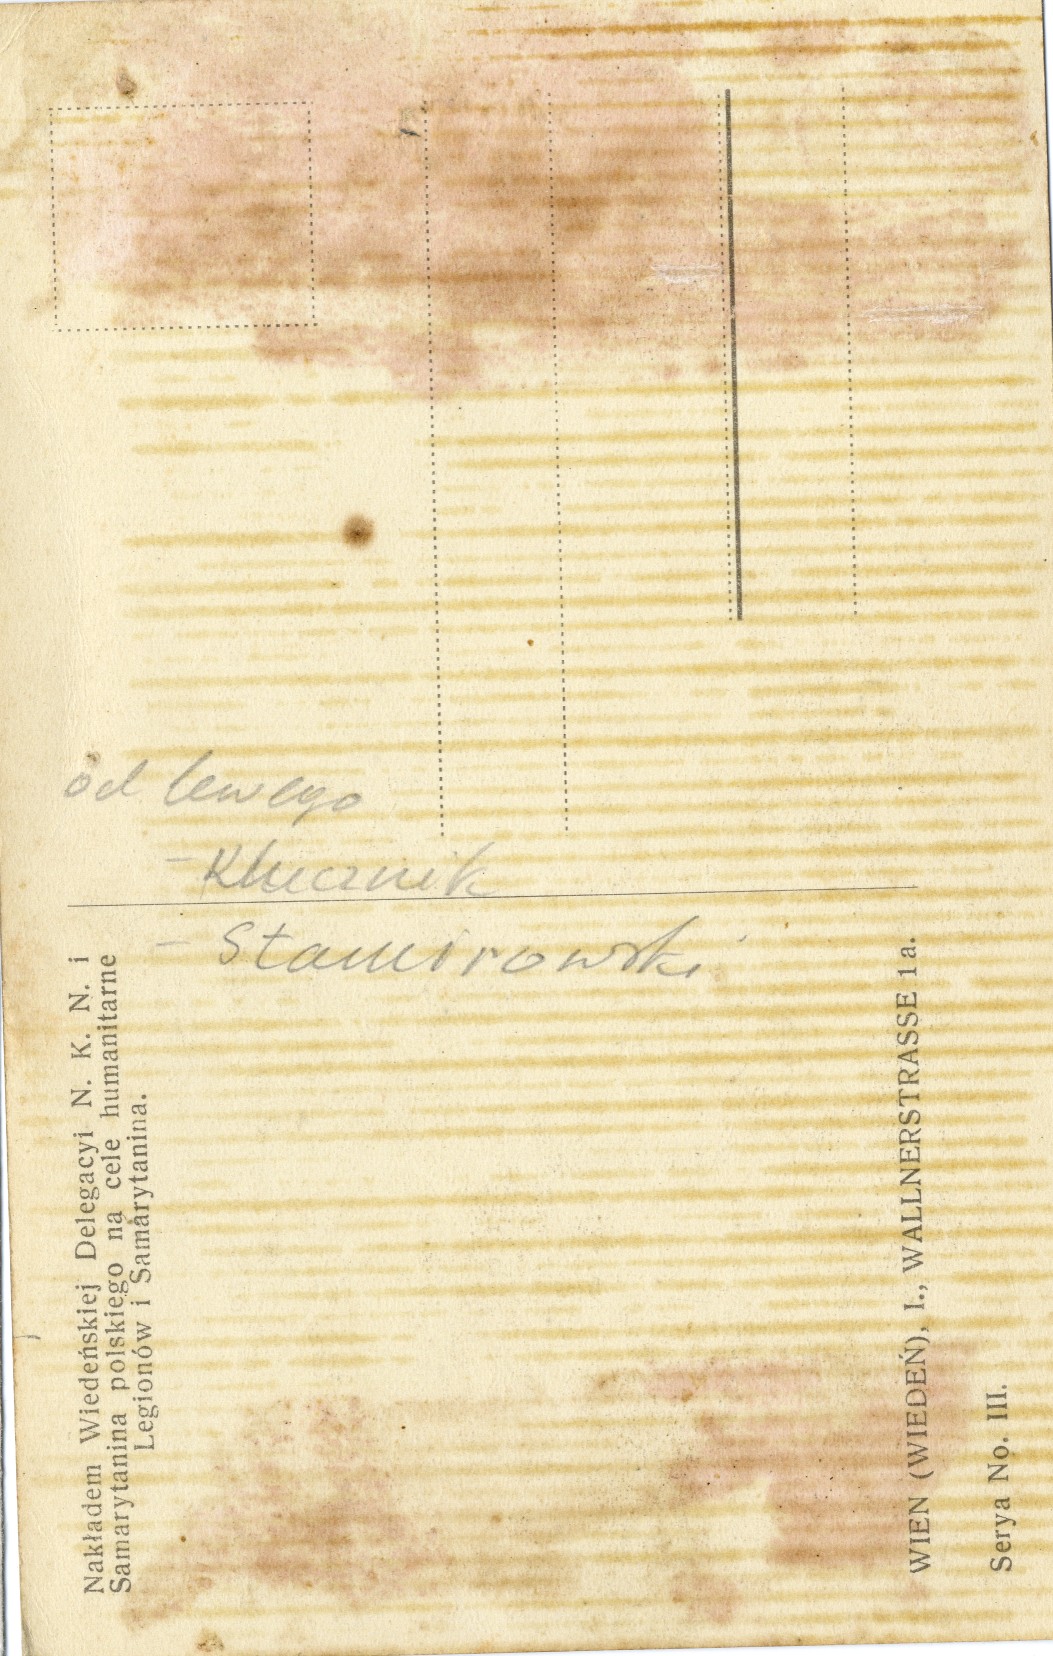 od lewego
- Klucznik
- Stamirowski
Nakładem Wiedeńskiej Delegacyi N. K. N. i
Samarytanina polskiego na cele humanitarne
Legionów i Samarytanina.
WIEN (WIEDEŃ), I., WALLNERSTRASSE 1a.
Serya No. III.